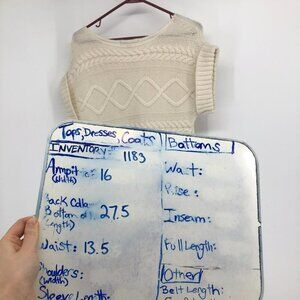 Tops, Dresses, Coats
INVENTORY: 1183
Armpit : 16
(width)
Back Colla
Bottom of 27.5
Length)
Waist: 13.5
Shoulders:
(width)
Sleeve Length:
Bottoms
Waist:
Rise:
Inseam:
Full Length:
Other
Belt Length: